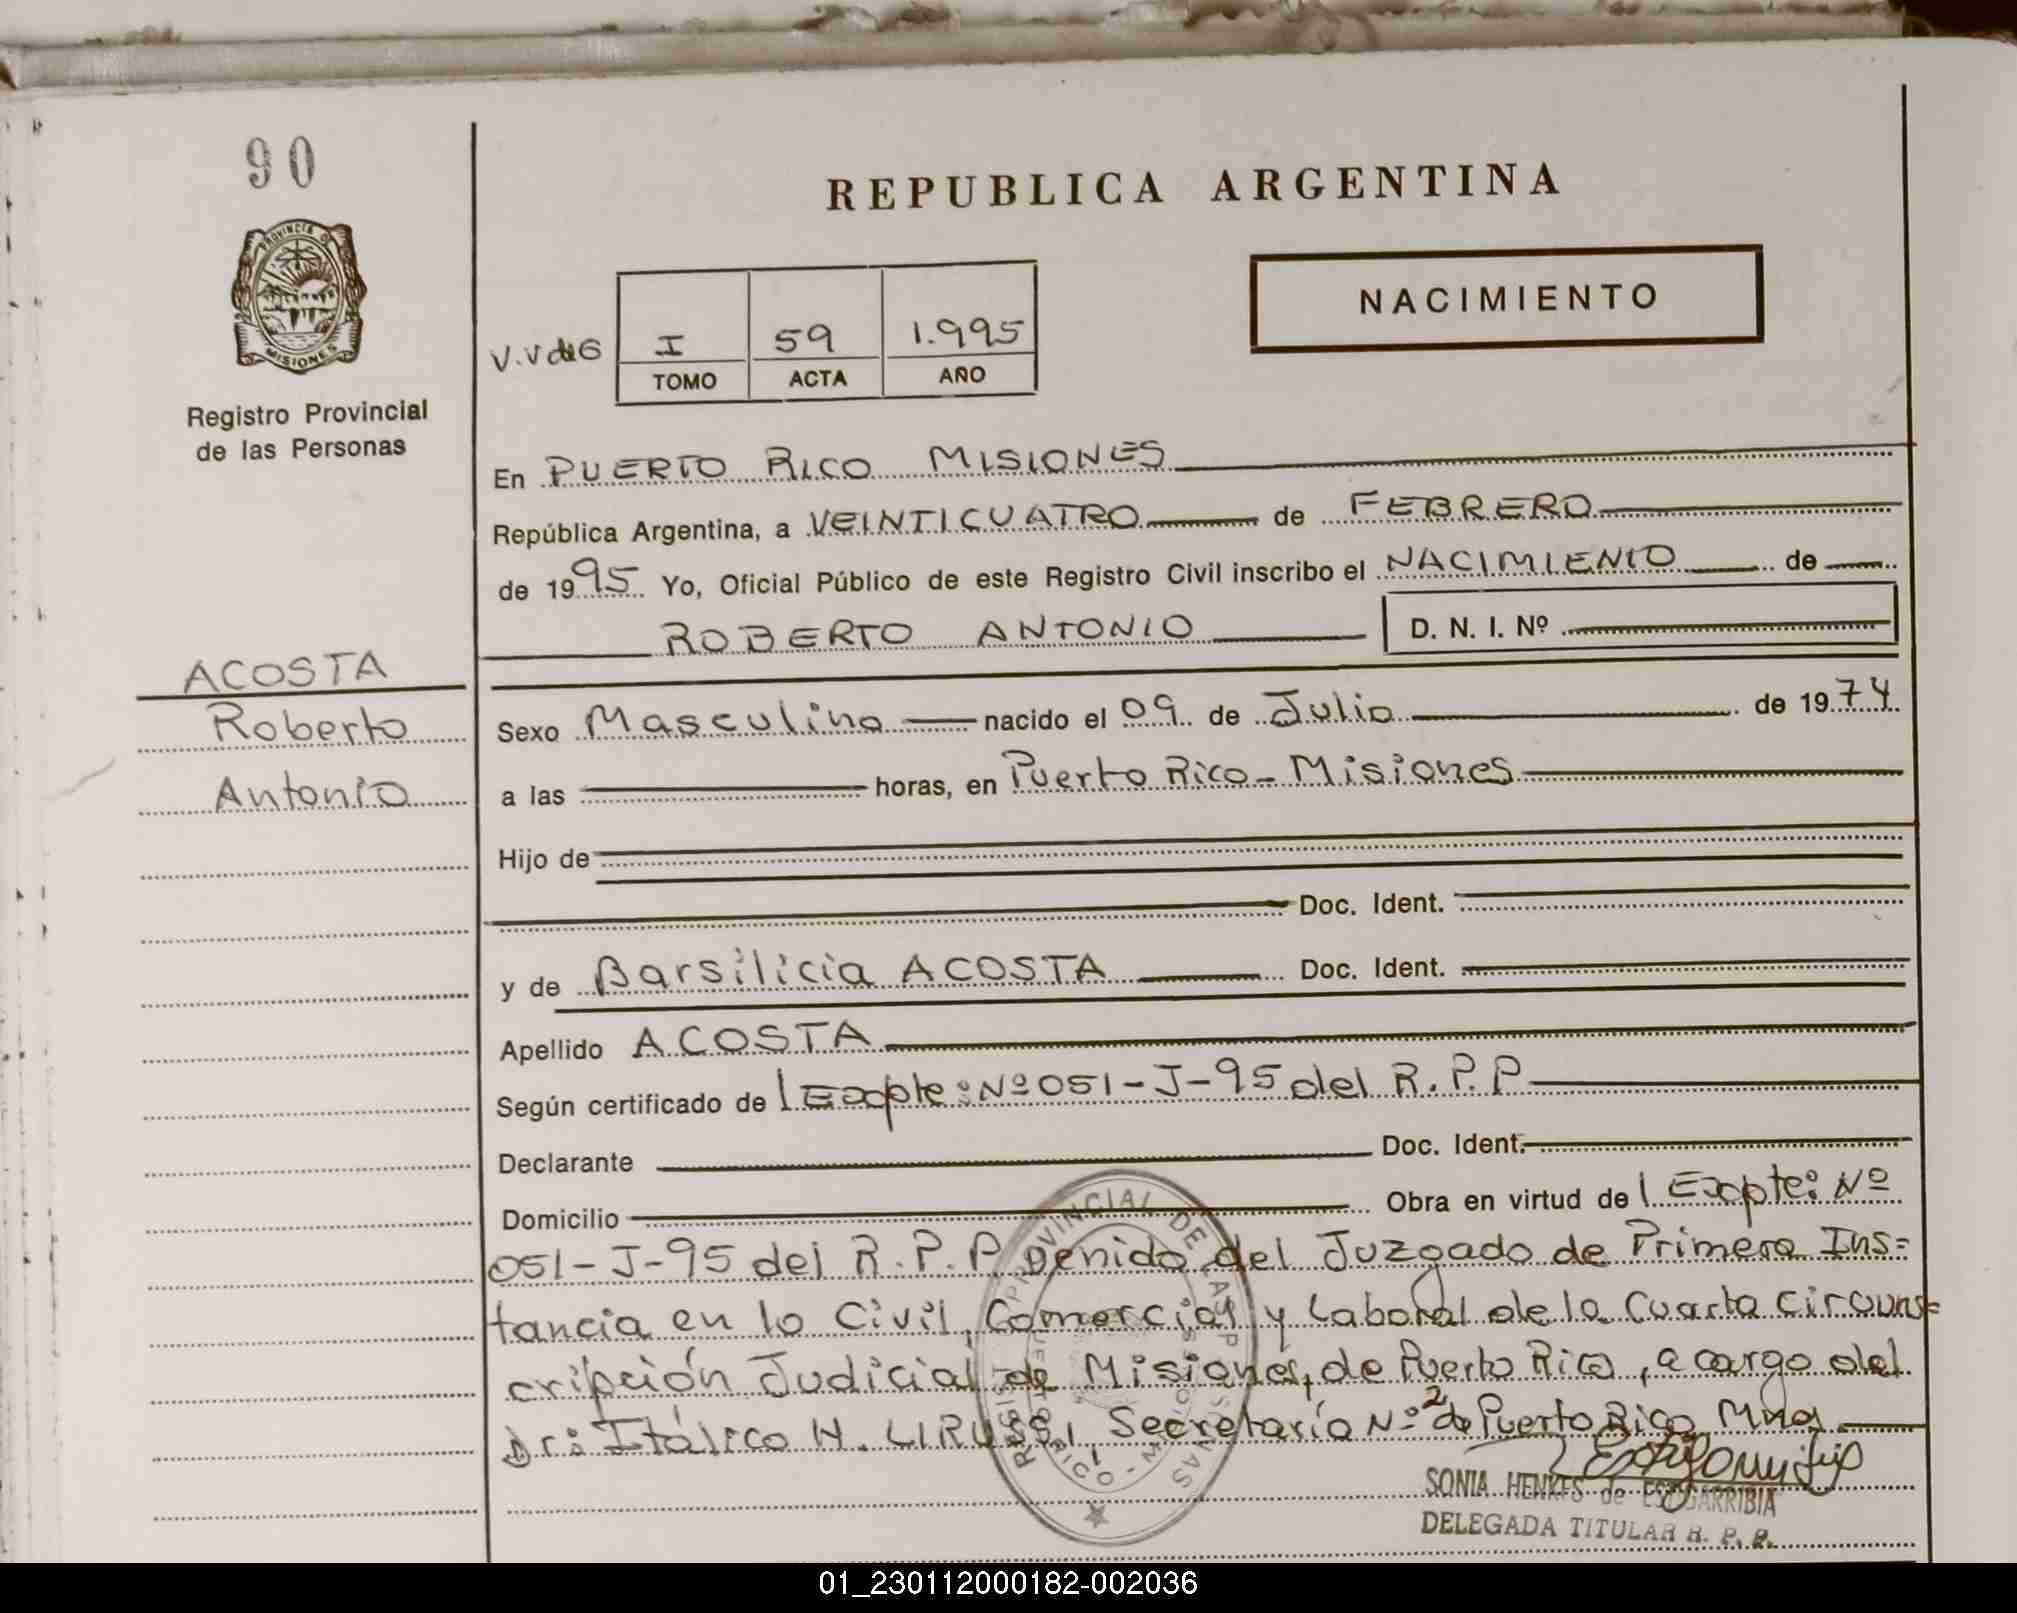 90
REPUBLICA ARGENTINA
PROVINCIA DE
MISIONES
NACIMIENTO
I 59 1.995
TOMO ACTA AÑO
Registro Provincial
de las Personas
En PUERTO RICO MISIONES
República Argentina, a VEINTICUATRO de FEBRERO
de 1995 Yo, Oficial Público de este Registro Civil inscribo el NACIMIENTO de
ROBERTO ANTONIO D. N. I. Nº
ACOSTA
Roberto
Antonio
Sexo Masculino nacido el 09 de Julio de 1974
a las horas, en Puerto Rico - Misiones
Hijo de
Doc. Ident.
y de Barsilicia ACOSTA Doc. Ident.
Apellido ACOSTA
Según certificado de Expte: Nº 051-J-95 del R.P.P
Declarante Doc. Ident.
Domicilio Obra en virtud de Expte: Nº
051-J-95 del R.P.P venido del Juzgado de Primera Ins=
tancia en lo Civil, Comercial y Laboral de la Cuarta Circuns=
cripción Judicial de Misiones, de Puerto Rico, a cargo del
Dr: Itálico H. LIRUSSI, Secretaría Nº 2 de Puerto Rico Mnes
SONIA HENKES de ESTIGARRIBIA
DELEGADA TITULAR R. P. P.
01_230112000182-002036